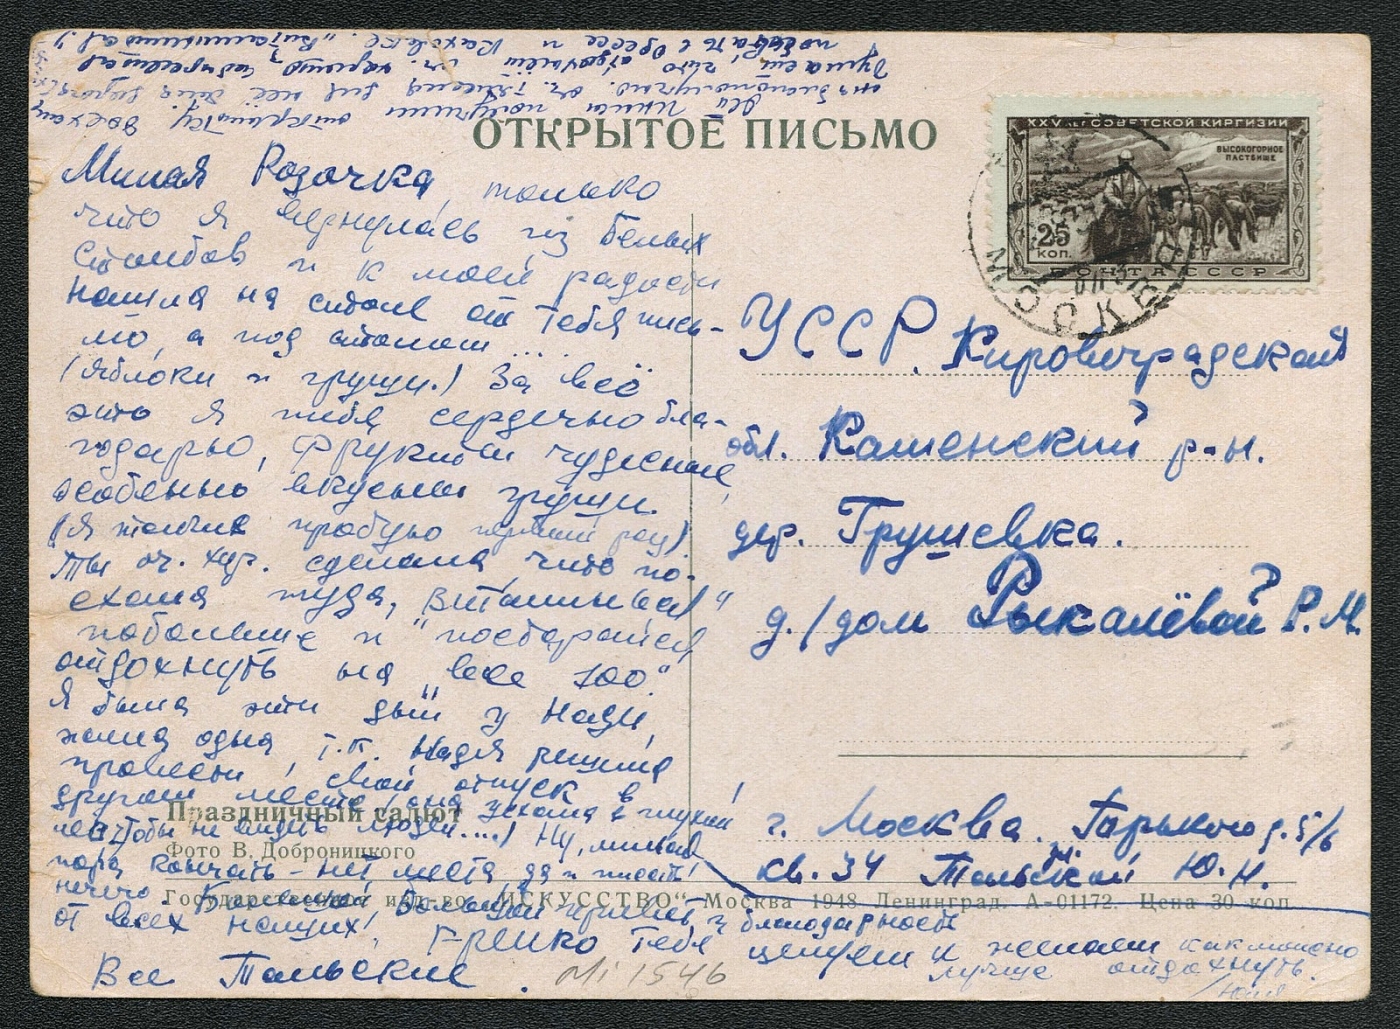 ОТКРЫТОЕ ПИСЬМО
XXV лет СОВЕТСКОЙ КИРГИЗИИ
ВЫСОКОГОРНОЕ
ПАСТБИЩЕ
25
КОП.
ПОЧТА СССР
МОСКВА
Милая Розочка, только
что я вернулась из Белых
Столбов и к моей радости
нашла на столе от Тебя пись-
мо, а под столом...
(яблоки и груши.) За всё
это я тебя сердечно бла-
годарю, фрукты чудесные,
особенно вкусны груши.
(я таких пробую первый раз)
Ты оч. хор. сделала что по-
ехала туда, "витаминься"
побольше и "постарайся
отдохнуть на все 100."
Я была эти дни у Нади,
жила одна т.к. Надя решила
провести свой отпуск в
другом месте (она уехала в глухой
лес, чтобы не видеть людей....) Ну, милая
пора кончать - нет места да и писать
нечего. Большой привет и благодарность
от всех наших! Крепко Тебя целуем и желаем как можно
лучше отдохнуть.
Все Тольские.
Юля
УССР. Кировоградская
обл. Каменский р-н.
дер. Грушевка.
д./дом Рыкалёвой Р. М.
г. Москва. Горького д. 5/6
кв. 34 Тольской Ю. Н.
Праздничный салют
Фото В. Доброницкого
Государственное изд-во „ИСКУССТВО“ Москва 1948 Ленинград. А-01172. Цена 30 коп.
Mi 1546
От Нины получили открытку. доехала
она благополучно.
Думает, что
побывать в Одессе и Каховке. "Витаминится"